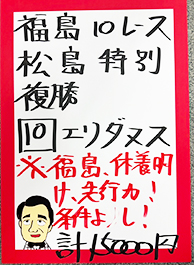 福島10レース
松島特別
複勝
10 エリダヌス
※福島、休養明
け、先行力!
条件よし!
計15000円